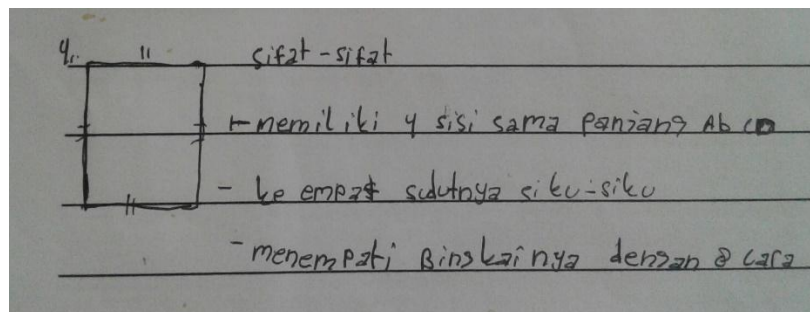 4. sifat-sifat
- memiliki 4 sisi sama panjang Ab CD
- ke empat sudutnya siku-siku
- menempati Bingkainya dengan 8 cara